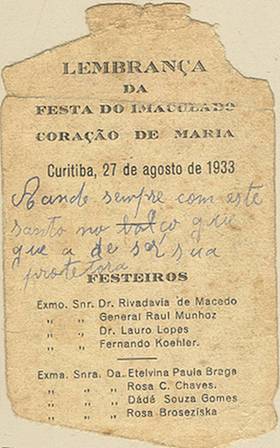 LEMBRANÇA
DA
FESTA DO IMACULADO
CORAÇÃO DE MARIA
Curitiba, 27 de agosto de 1933
Rande sempre com este
santo no balço que
que a de ser sua
protetora
FESTEIROS
Exmo. Snr. Dr. Rivadavia de Macedo
„ „ General Raul Munhoz
„ „ Dr. Lauro Lopes
„ „ Fernando Koehler.
Exma. Snra. Da. Etelvina Paula Braga
„ „ „ Rosa C. Chaves.
„ „ „ Dádé Souza Gomes
„ „ „ Rosa Broseziska